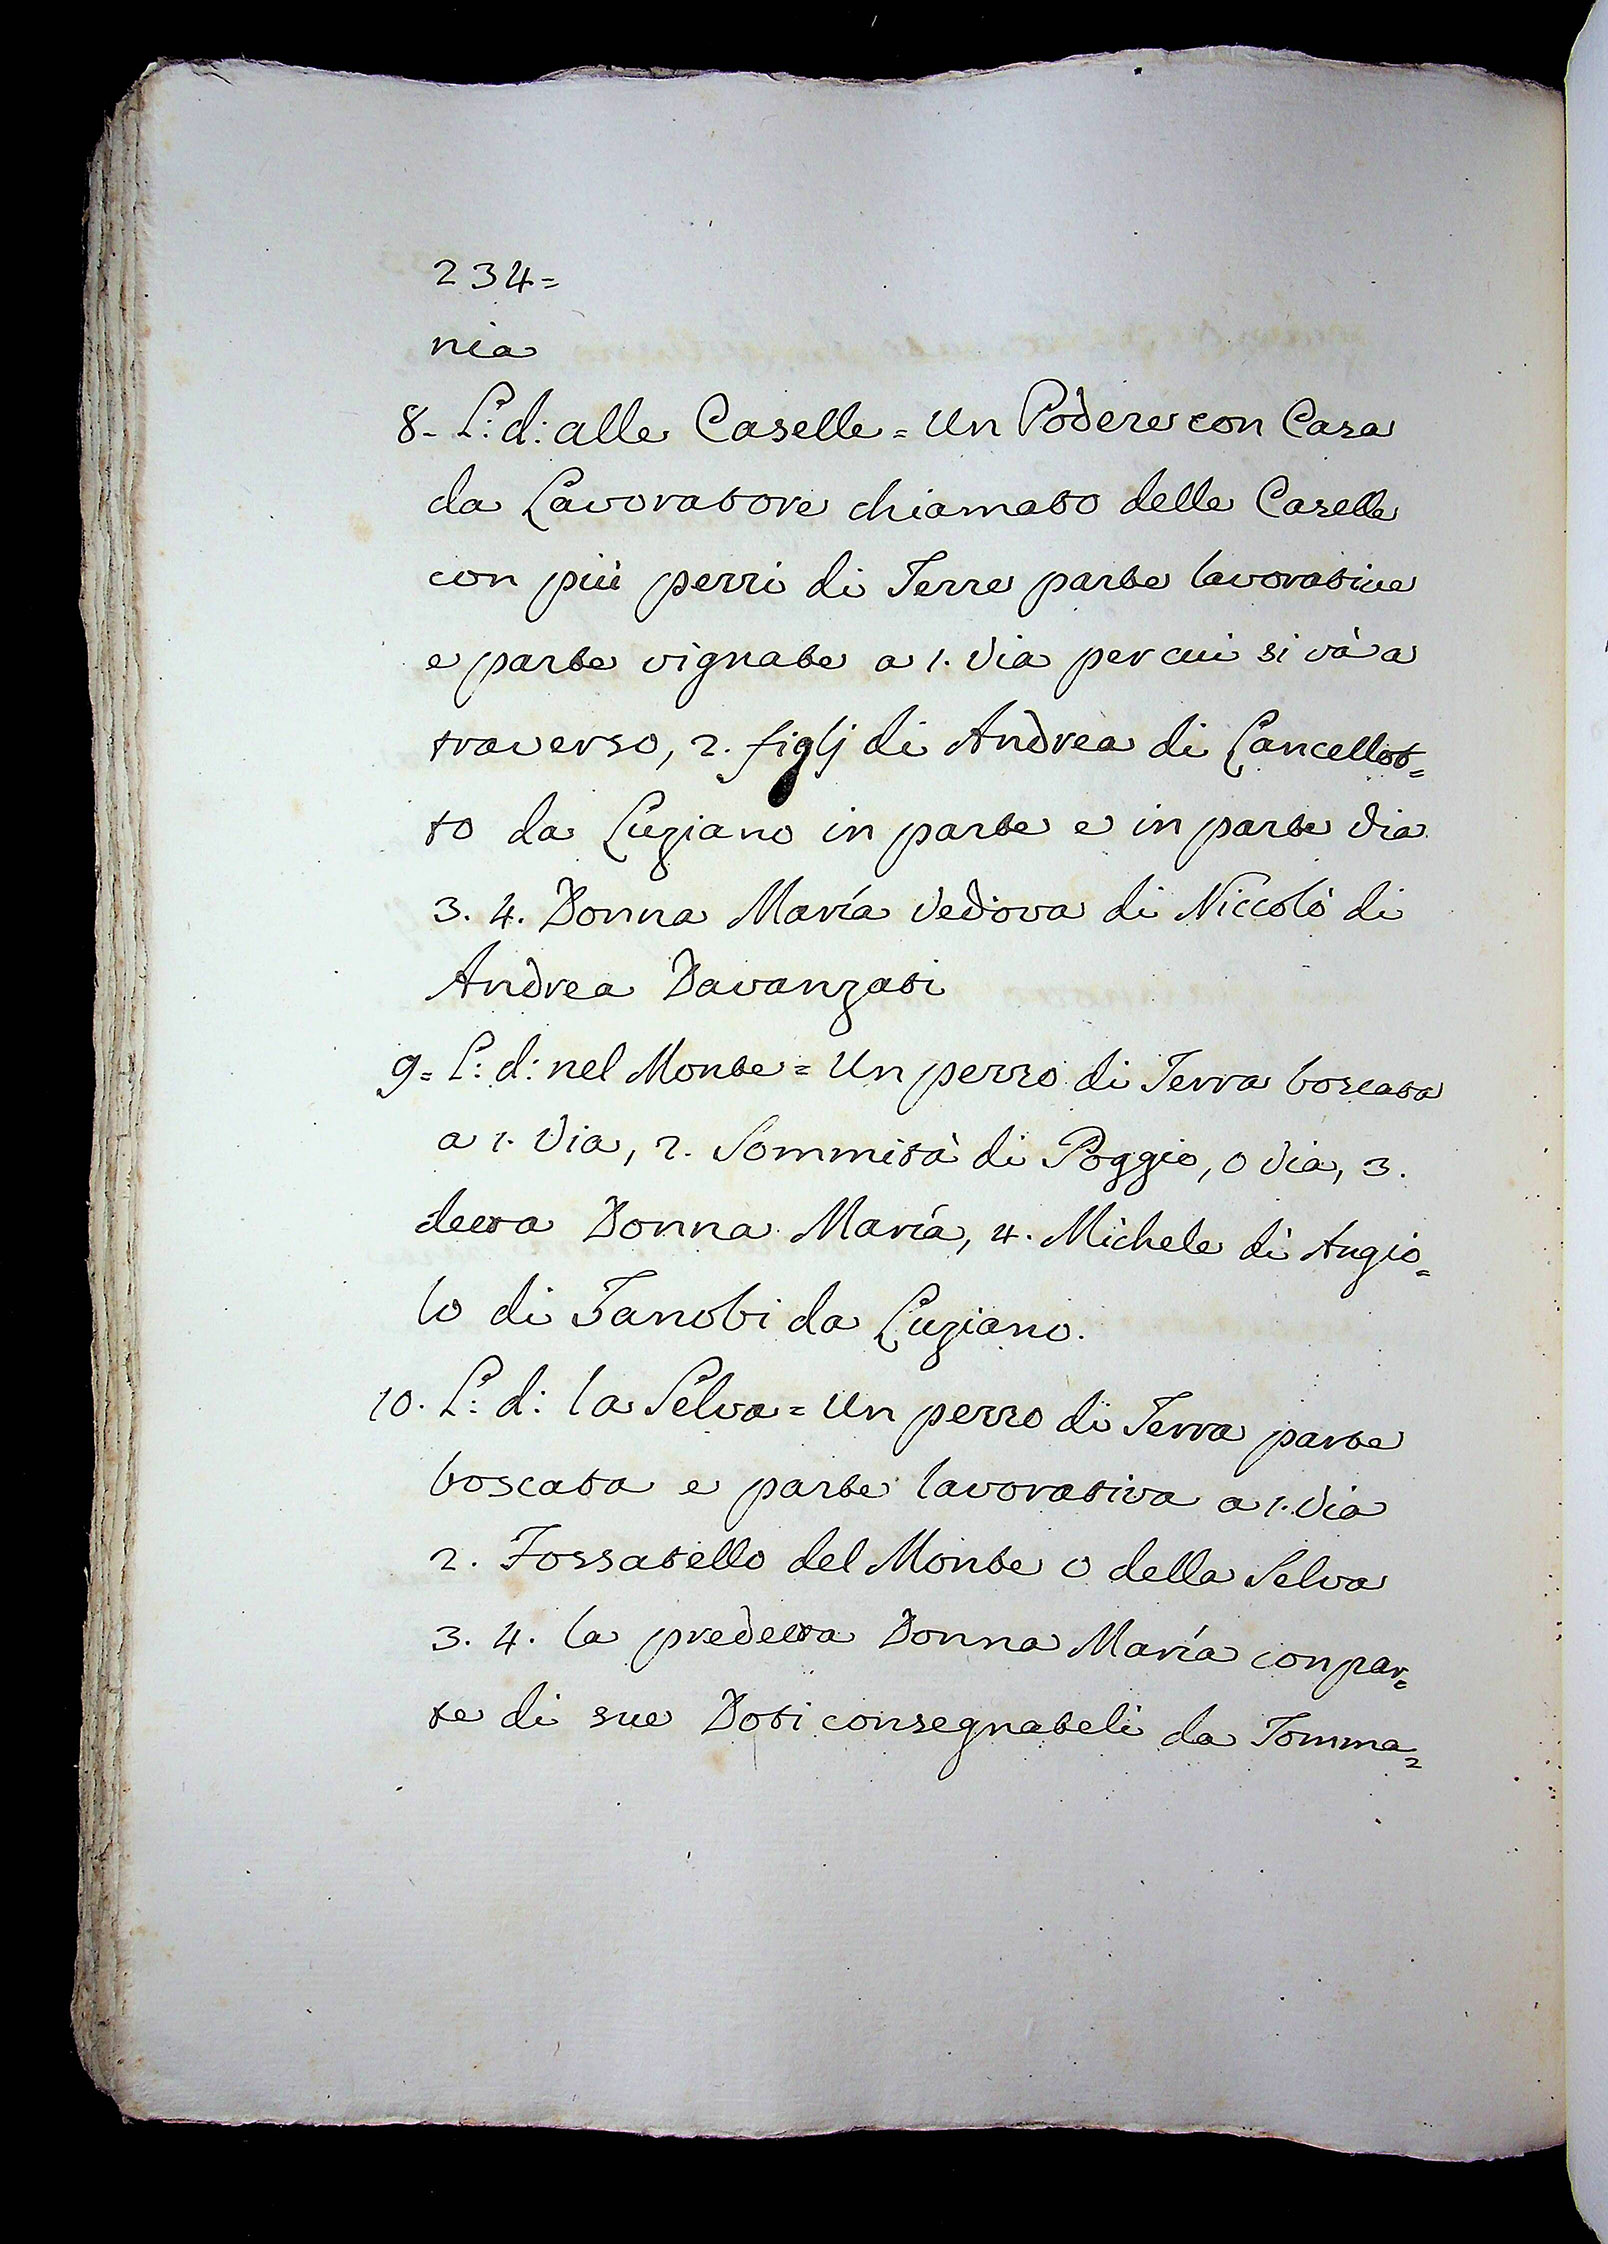 234=
nia
8- L: d: alle Caselle = Un Podere con Casa
da Lavoratore chiamato delle Caselle
con più pezzi di Terre parte lavorative
e parte vignate a 1. Via per cui si và a
traverso, 2. figlj di Andrea di Lancellot=
to da Luziano in parte e in parte Via
3. 4. Donna María Vedova di Niccolò di
Andrea Davanzati
9= L: d: nel Monte = Un pezzo di Terra boscata
a 1. Via, 2. Sommità di Poggio, o Via, 3.
detta Donna María, 4. Michele di Angio=
lo di Zanobi da Luziano.
10. L: d: la Selva = Un pezzo di Terra parte
boscata e parte lavorativa a 1. Via
2. Fossatello del Monte o della Selva
3. 4. la predetta Donna María con par=
te di sue Doti consegnateli da Tomma=